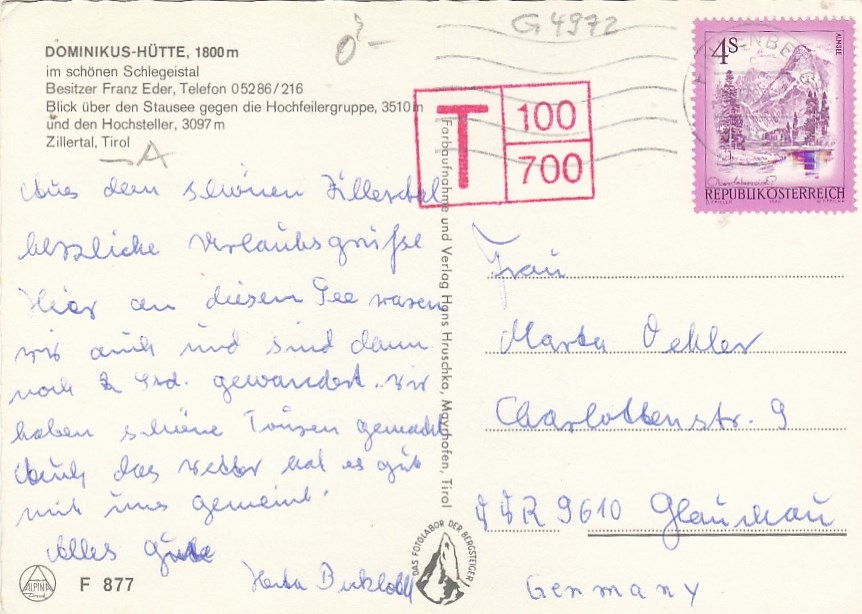 G 4972
DOMINIKUS-HÜTTE, 1800 m
im schönen Schlegeistal
Besitzer Franz Eder, Telefon 05286/216
Blick über den Stausee gegen die Hochfeilergruppe, 3510 m
und den Hochsteller, 3097 m
Zillertal, Tirol
T 100
700
4S
ALMSEE
REPUBLIK ÖSTERREICH
Aus dem schönen Zillertal
herzliche Urlaubsgrüße
Hier an diesem See waren
wir auch und sind dann
noch 2 Std. gewandert. Wir
haben schöne Touren gemacht
Auch das Wetter hat es gut
mit uns gemeint.
Alles Gute
Herta
Farbaufnahme und Verlag Hans Hruschka, Mayrhofen, Tirol
Frau
Marta Oehler
Charlottenstr. 9
DDR 9610 Glauchau
Germany
DAS FOTOLABOR DER BERGSTEIGER
ALPINA
F 877